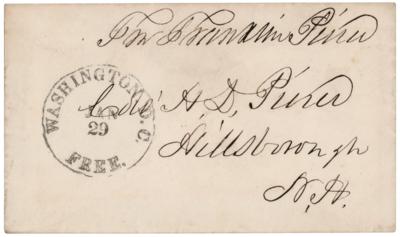 Fm Franklin Pierce
WASHINGTON D.C.
JAN
29
FREE.
Col. H. D. Pierce
Hillsborough
N.H.